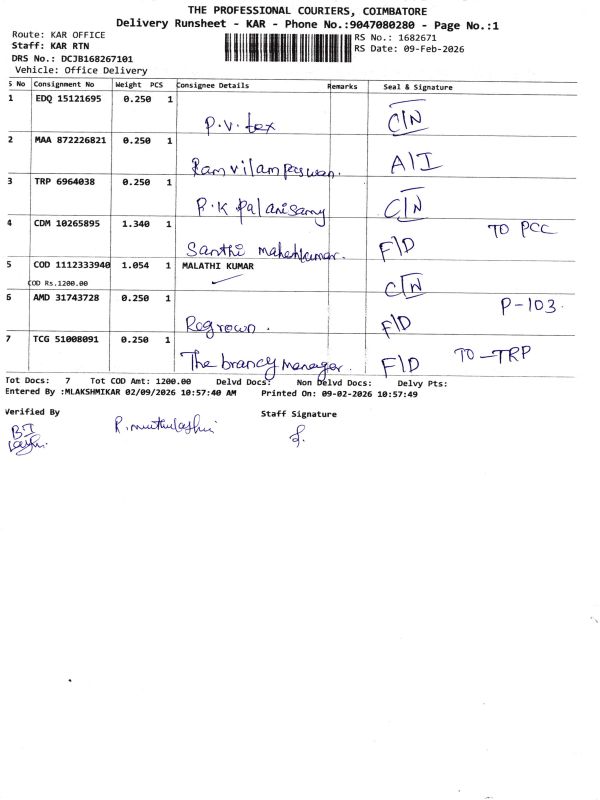 THE PROFESSIONAL COURIERS, COIMBATORE
Delivery Runsheet - KAR - Phone No.:9047080280 - Page No.:1
Route: KAR OFFICE
RS No.: 1682671
Staff: KAR RTN
RS Date: 09-Feb-2026
DRS No.: DCJB168267101
Vehicle: Office Delivery
S No Consignment No Weight PCS Consignee Details Remarks Seal & Signature
1 EDQ 15121695 0.250 1
P.V. tex C/N
2 MAA 872226821 0.250 1
Ram vilam paswan. A/I
3 TRP 6964038 0.250 1
P.K Palanisamy C/N
4 CDM 10265895 1.340 1
Santhi maheshkumar. F/D TO PCC
5 COD 1112333940 1.054 1 MALATHI KUMAR
COD Rs.1200.00 C/N
6 AMD 31743728 0.250 1
Regrown. F/D P-103.
7 TCG 51008091 0.250 1
The brancy manager. F/D TO-TRP
Tot Docs: 7 Tot COD Amt: 1200.00 Delvd Docs: Non Delvd Docs: Delvy Pts:
Entered By :MLAKSHMIKAR 02/09/2026 10:57:40 AM Printed On: 09-02-2026 10:57:49
Verified By Staff Signature